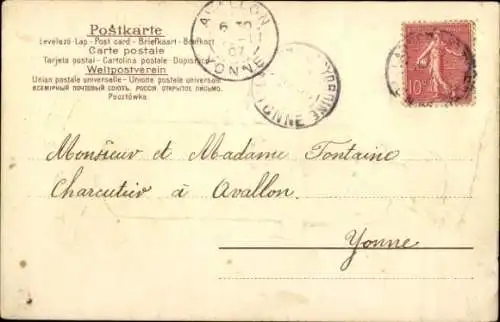 Postkarte
Levelező-Lap - Post card - Briefkaart - Brefkort
Carte postale
Tarjeta postal - Cartolina postale - Dopisnice
Weltpostverein
Union postale universelle - Unione postale universale
ВСЕМІРНЫЙ ПОЧТОВЫЙ СОЮЗЪ. РОССІЯ ОТКРЫТОЕ ПИСЬМО.
Pocztówka
AVALLON
07
YONNE
YONNE
10
Monsieur et Madame Fontaine
Charcutier à Avallon.
Yonne